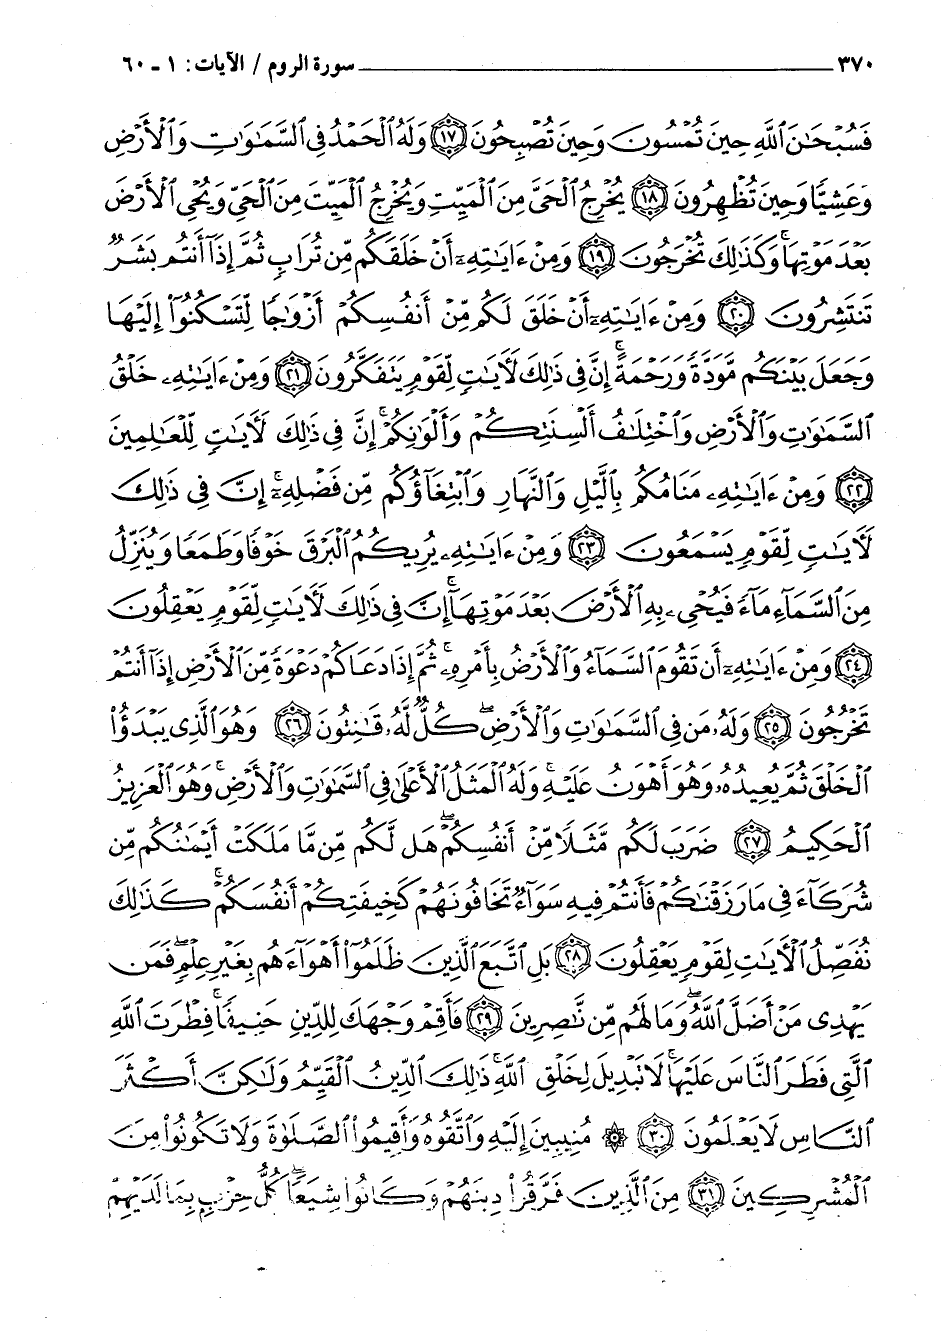 ٣٧٠ سورة الروم / الآيات: ١ - ٦٠
فَسُبْحَٰنَ ٱللَّهِ حِينَ تُمْسُونَ وَحِينَ تُصْبِحُونَ ﴿١٧﴾ وَلَهُ ٱلْحَمْدُ فِى ٱلسَّمَٰوَٰتِ وَٱلْأَرْضِ
وَعَشِيًّا وَحِينَ تُظْهِرُونَ ﴿١٨﴾ يُخْرِجُ ٱلْحَىَّ مِنَ ٱلْمَيِّتِ وَيُخْرِجُ ٱلْمَيِّتَ مِنَ ٱلْحَىِّ وَيُحْىِ ٱلْأَرْضَ
بَعْدَ مَوْتِهَا ۚ وَكَذَٰلِكَ تُخْرَجُونَ ﴿١٩﴾ وَمِنْ ءَايَٰتِهِۦٓ أَنْ خَلَقَكُم مِّن تُرَابٍ ثُمَّ إِذَآ أَنتُم بَشَرٌ
تَنتَشِرُونَ ﴿٢٠﴾ وَمِنْ ءَايَٰتِهِۦٓ أَنْ خَلَقَ لَكُم مِّنْ أَنفُسِكُمْ أَزْوَٰجًا لِّتَسْكُنُوٓا۟ إِلَيْهَا
وَجَعَلَ بَيْنَكُم مَّوَدَّةً وَرَحْمَةً ۚ إِنَّ فِى ذَٰلِكَ لَءَايَٰتٍ لِّقَوْمٍ يَتَفَكَّرُونَ ﴿٢١﴾ وَمِنْ ءَايَٰتِهِۦ خَلْقُ
ٱلسَّمَٰوَٰتِ وَٱلْأَرْضِ وَٱخْتِلَٰفُ أَلْسِنَتِكُمْ وَأَلْوَٰنِكُمْ ۚ إِنَّ فِى ذَٰلِكَ لَءَايَٰتٍ لِّلْعَٰلِمِينَ
﴿٢٢﴾ وَمِنْ ءَايَٰتِهِۦ مَنَامُكُم بِٱلَّيْلِ وَٱلنَّهَارِ وَٱبْتِغَآؤُكُم مِّن فَضْلِهِۦٓ ۚ إِنَّ فِى ذَٰلِكَ
لَءَايَٰتٍ لِّقَوْمٍ يَسْمَعُونَ ﴿٢٣﴾ وَمِنْ ءَايَٰتِهِۦ يُرِيكُمُ ٱلْبَرْقَ خَوْفًا وَطَمَعًا وَيُنَزِّلُ
مِنَ ٱلسَّمَآءِ مَآءً فَيُحْىِۦ بِهِ ٱلْأَرْضَ بَعْدَ مَوْتِهَآ ۚ إِنَّ فِى ذَٰلِكَ لَءَايَٰتٍ لِّقَوْمٍ يَعْقِلُونَ
﴿٢٤﴾ وَمِنْ ءَايَٰتِهِۦٓ أَن تَقُومَ ٱلسَّمَآءُ وَٱلْأَرْضُ بِأَمْرِهِۦ ۚ ثُمَّ إِذَا دَعَاكُمْ دَعْوَةً مِّنَ ٱلْأَرْضِ إِذَآ أَنتُمْ
تَخْرُجُونَ ﴿٢٥﴾ وَلَهُۥ مَن فِى ٱلسَّمَٰوَٰتِ وَٱلْأَرْضِ ۖ كُلٌّ لَّهُۥ قَٰنِتُونَ ﴿٢٦﴾ وَهُوَ ٱلَّذِى يَبْدَؤُا۟
ٱلْخَلْقَ ثُمَّ يُعِيدُهُۥ وَهُوَ أَهْوَنُ عَلَيْهِ ۚ وَلَهُ ٱلْمَثَلُ ٱلْأَعْلَىٰ فِى ٱلسَّمَٰوَٰتِ وَٱلْأَرْضِ ۚ وَهُوَ ٱلْعَزِيزُ
ٱلْحَكِيمُ ﴿٢٧﴾ ضَرَبَ لَكُم مَّثَلًا مِّنْ أَنفُسِكُمْ ۖ هَل لَّكُم مِّن مَّا مَلَكَتْ أَيْمَٰنُكُم مِّن
شُرَكَآءَ فِى مَا رَزَقْنَٰكُمْ فَأَنتُمْ فِيهِ سَوَآءٌ تَخَافُونَهُمْ كَخِيفَتِكُمْ أَنفُسَكُمْ ۚ كَذَٰلِكَ
نُفَصِّلُ ٱلْءَايَٰتِ لِقَوْمٍ يَعْقِلُونَ ﴿٢٨﴾ بَلِ ٱتَّبَعَ ٱلَّذِينَ ظَلَمُوٓا۟ أَهْوَآءَهُم بِغَيْرِ عِلْمٍ ۖ فَمَن
يَهْدِى مَنْ أَضَلَّ ٱللَّهُ ۖ وَمَا لَهُم مِّن نَّٰصِرِينَ ﴿٢٩﴾ فَأَقِمْ وَجْهَكَ لِلدِّينِ حَنِيفًا ۚ فِطْرَتَ ٱللَّهِ
ٱلَّتِى فَطَرَ ٱلنَّاسَ عَلَيْهَا ۚ لَا تَبْدِيلَ لِخَلْقِ ٱللَّهِ ۚ ذَٰلِكَ ٱلدِّينُ ٱلْقَيِّمُ وَلَٰكِنَّ أَكْثَرَ
ٱلنَّاسِ لَا يَعْلَمُونَ ﴿٣٠﴾ ۞ مُنِيبِينَ إِلَيْهِ وَٱتَّقُوهُ وَأَقِيمُوا۟ ٱلصَّلَوٰةَ وَلَا تَكُونُوا۟ مِنَ
ٱلْمُشْرِكِينَ ﴿٣١﴾ مِنَ ٱلَّذِينَ فَرَّقُوا۟ دِينَهُمْ وَكَانُوا۟ شِيَعًا ۖ كُلُّ حِزْبٍۭ بِمَا لَدَيْهِمْ